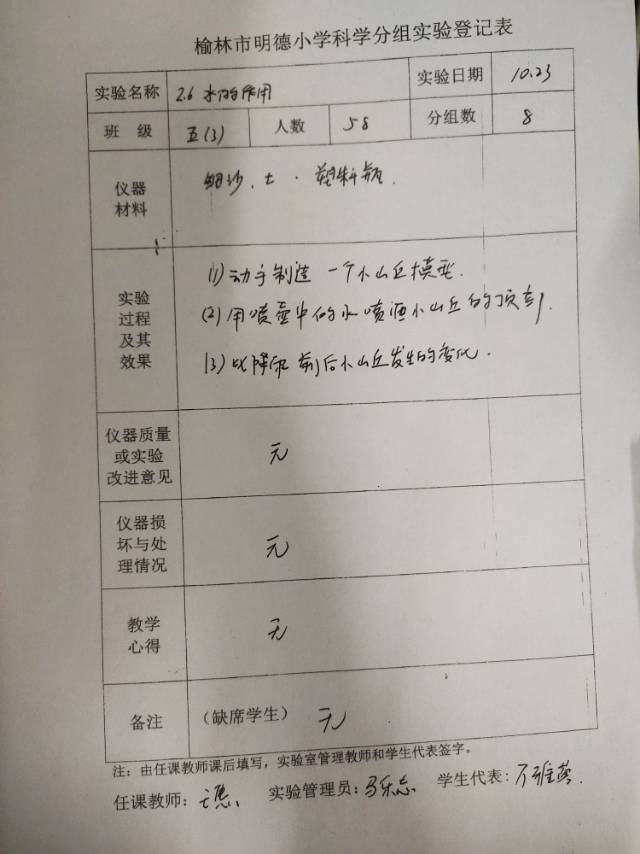 榆林市明德小学科学分组实验登记表
实验名称 2.6 水的作用 实验日期 10.23
班 级 五(3) 人数 58 分组数 8
仪器
材料
细沙、土、塑料瓶.
实验
过程
及其
效果
(1)动手制造一个小山丘模型.
(2)用喷壶中的水喷洒小山丘的顶部.
(3)比降雨前后小山丘发生的变化.
仪器质量
或实验
改进意见
无
仪器损
坏与处
理情况
无
教学
心得
无
备注 (缺席学生) 无
注：由任课教师课后填写，实验室管理教师和学生代表签字。
任课教师: 实验管理员: 学生代表: